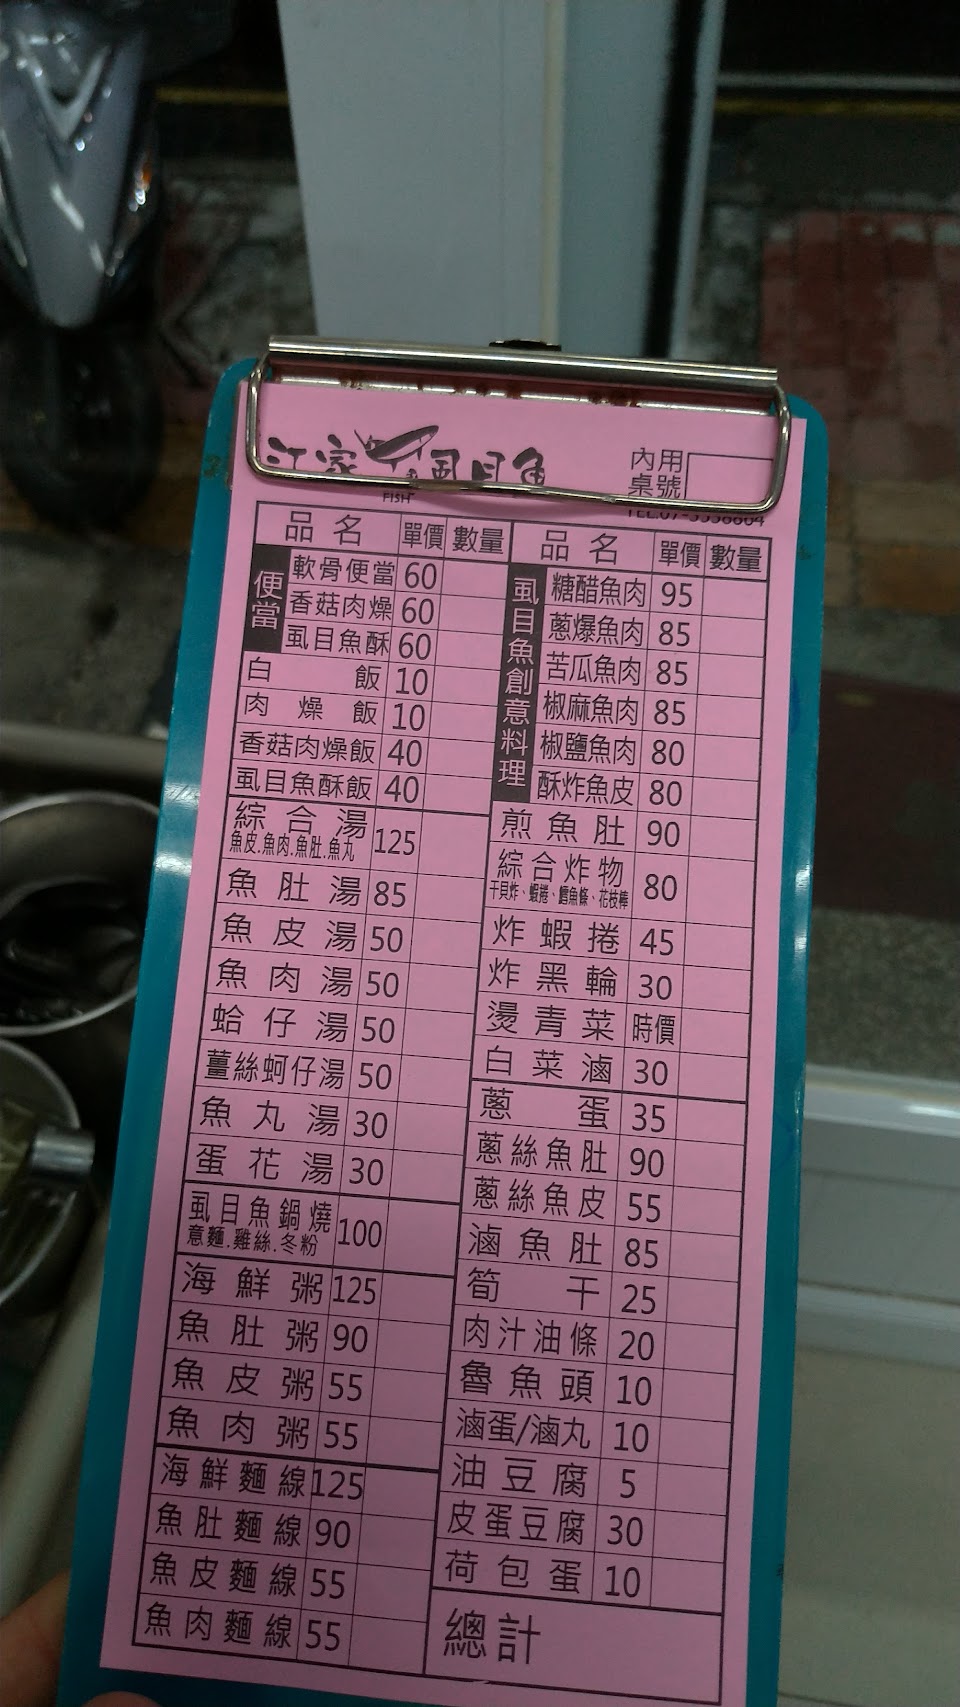 江家虱目魚
FISH
內用
桌號
品名 單價 數量
便當
軟骨便當 60
香菇肉燥 60
虱目魚酥 60
白飯 10
肉燥飯 10
香菇肉燥飯 40
虱目魚酥飯 40
綜合湯 125
魚皮.魚肉.魚肚.魚丸
魚肚湯 85
魚皮湯 50
魚肉湯 50
蛤仔湯 50
薑絲蚵仔湯 50
魚丸湯 30
蛋花湯 30
虱目魚鍋燒 100
意麵.雞絲.冬粉
海鮮粥 125
魚肚粥 90
魚皮粥 55
魚肉粥 55
海鮮麵線 125
魚肚麵線 90
魚皮麵線 55
魚肉麵線 55
品名 單價 數量
虱目魚創意料理
糖醋魚肉 95
蔥爆魚肉 85
苦瓜魚肉 85
椒麻魚肉 85
椒鹽魚肉 80
酥炸魚皮 80
煎魚肚 90
綜合炸物 80
干貝炸、蝦捲、鱈魚條、花枝棒
炸蝦捲 45
炸黑輪 30
燙青菜 時價
白菜滷 30
蔥蛋 35
蔥絲魚肚 90
蔥絲魚皮 55
滷魚肚 85
筍干 25
肉汁油條 20
魯魚頭 10
滷蛋/滷丸 10
油豆腐 5
皮蛋豆腐 30
荷包蛋 10
總計